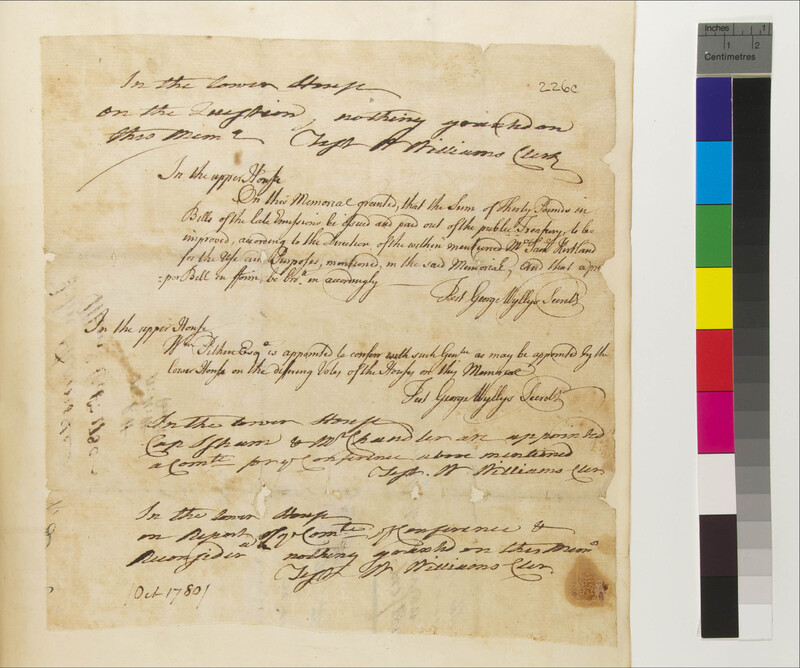 226c
In the Lower House
on the Question, nothing granted on
this Mem.ll Test W Williams Clerk
In the upper House
On this Memorial granted, that the Sum of Thirty Pounds in
Bills of the late Emissions be issued and paid out of the public Treasury, to be
improved, according to the Direction of the within mentioned Mr. Saml. Kirtland
for the Use and Purposes, mentioned, in the said Memorial, and that a pro
=per Bill in form, be bro.t in accordingly
Test George Wyllys Secret.y
In the upper House
Wm. Pitkin Esqr. is appointed to confer with such Gentn. as may be appointed by the
lower House on the differing Votes of the Houses on this Memorial
Test George Wyllys Secret.y
In the Lower House
Cap Isham & Mr. Chandler are appointed
a Comtee for ye Conference above mentioned
Test. W Williams Cler.
In the Lower House
on Report of ye Comtee of Conference &
Reconsider.a nothing granted on this Mem.o
Test. W Williams Cler.
(Oct 1780)
Inches 1
1 2
Centimetres